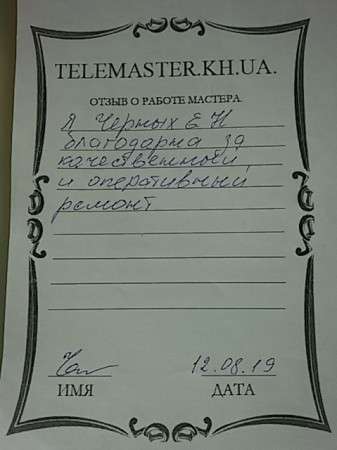 TELEMASTER.KH.UA.
ОТЗЫВ О РАБОТЕ МАСТЕРА.
Я Черных Е Н
благодарна за
качественный
и оперативный
ремонт
12.08.19
ИМЯ ДАТА